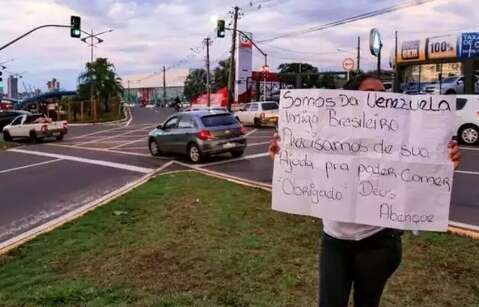 Somos Da Venezuela
Imigo Brasileiro
Precisamos de sua
Ajuda pra poder Comer
Obrigado Deus
Abençoe
100%
TAXA